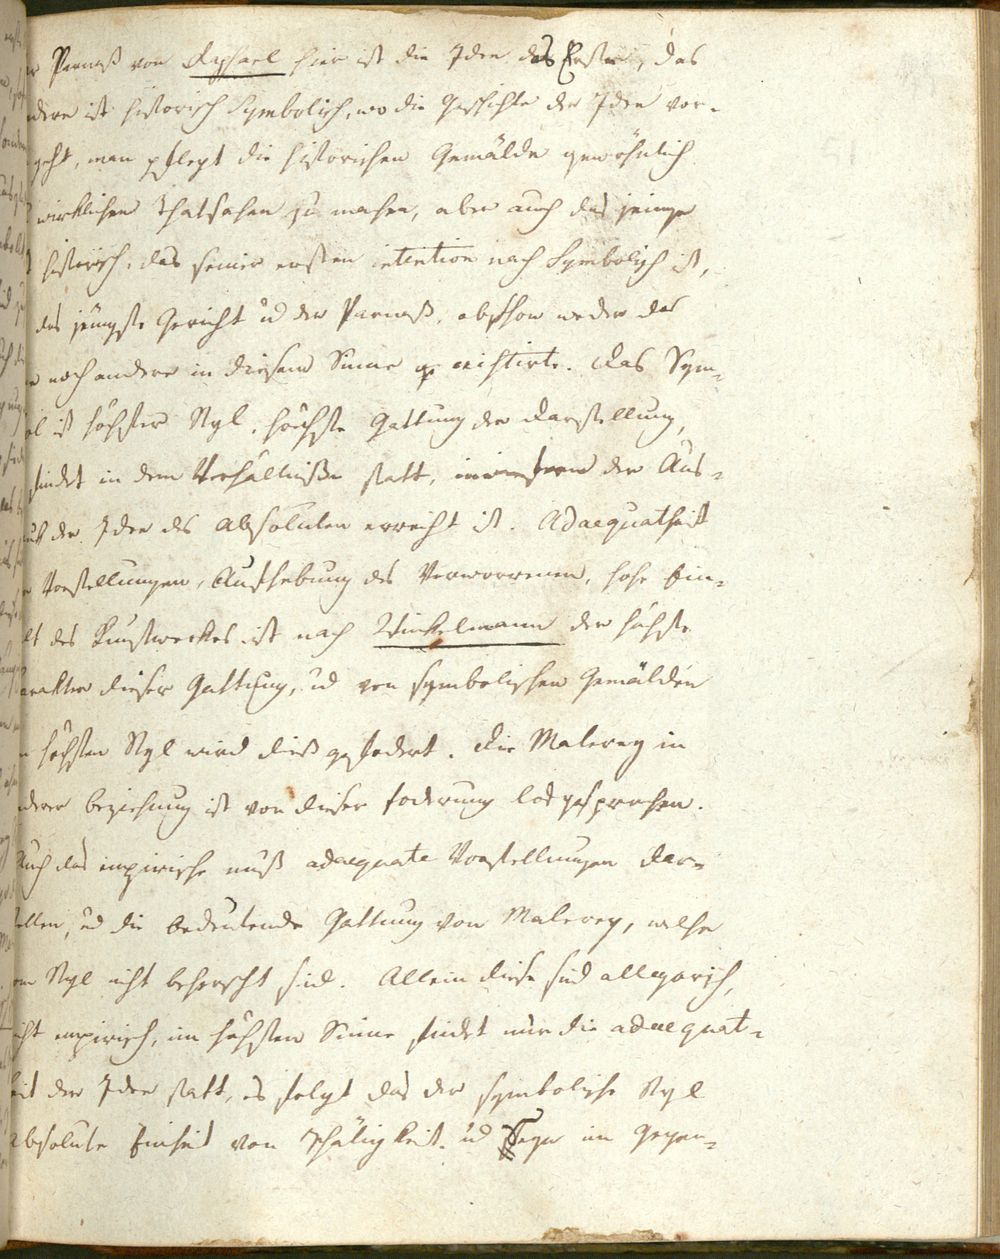 r Parnaß von Raphael hier ist die Idee das Erste, das
ndere ist historisch Symbolisch, wo die Geschichte der Idee vor-
geht, man pflegt die historischen Gemälde gewöhnlich
wirklichen Thatsachen zu machen, aber auch das jenige
historisch, das seiner ersten intention nach Symbolisch ist,
das jüngste Gericht ud der Parnaß, obschon weder das
e noch andere in diesem Sinne existirte. Das Sym-
ol ist höchster Styl, höchste Gattung der Darstellung,
findet in dem Verhältniße statt, inwiefern der Aus-
uck der Idee des absoluten erreicht ist. Adaequatheit
r Vorstellungen, Aufhebung des Verworrenen, hohe Ein-
lt des Kunstwerkes ist nach Winkelmann der höchste
arakter dieser Gattung, ud von symbolischen Gemälden
n höchsten Styl wird dieß gefodert. Die Malerey in
derer beziehung ist von dieser foderung losgesprochen.
Auch das empirische muß adaequate Vorstellungen dar-
tellen, ud die bedeutende Gattung von Malerey, welche
om Styl nicht beherscht sid. Allein diese sid allegorisch,
icht empirisch, im höchsten Sinne findet nur die adaequat-
eit der Idee statt, es folgt das der symbolische Styl
absolute Einheit von Thätigkeit ud Seyn im Gegen-